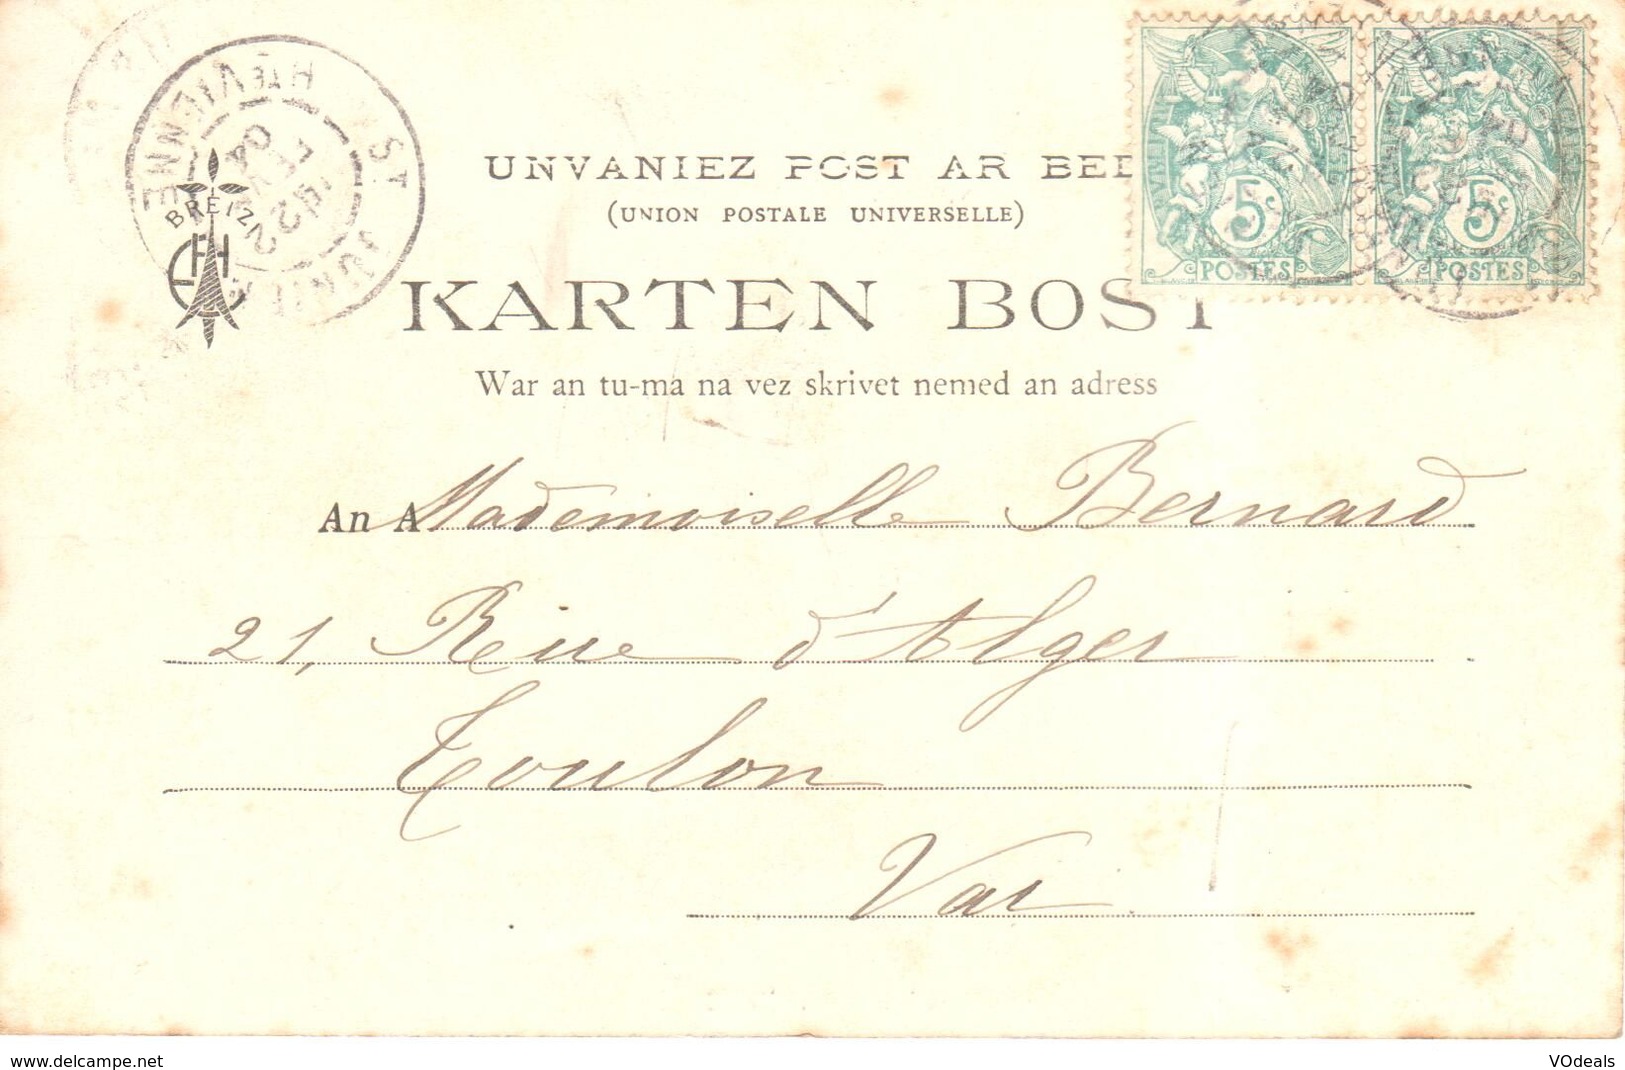 UNVANIEZ POST AR BED
(UNION POSTALE UNIVERSELLE)
KARTEN BOST
War an tu-ma na vez skrivet nemed an adress
ST JUNIEN
HTE VIENNE
22
JUIL
04
BREIZ
5c 5c
POSTES POSTES
An A Mademoiselle Bernard
21, Rue d'Alger
Toulon
Var
www.delcampe.net
VOdeals